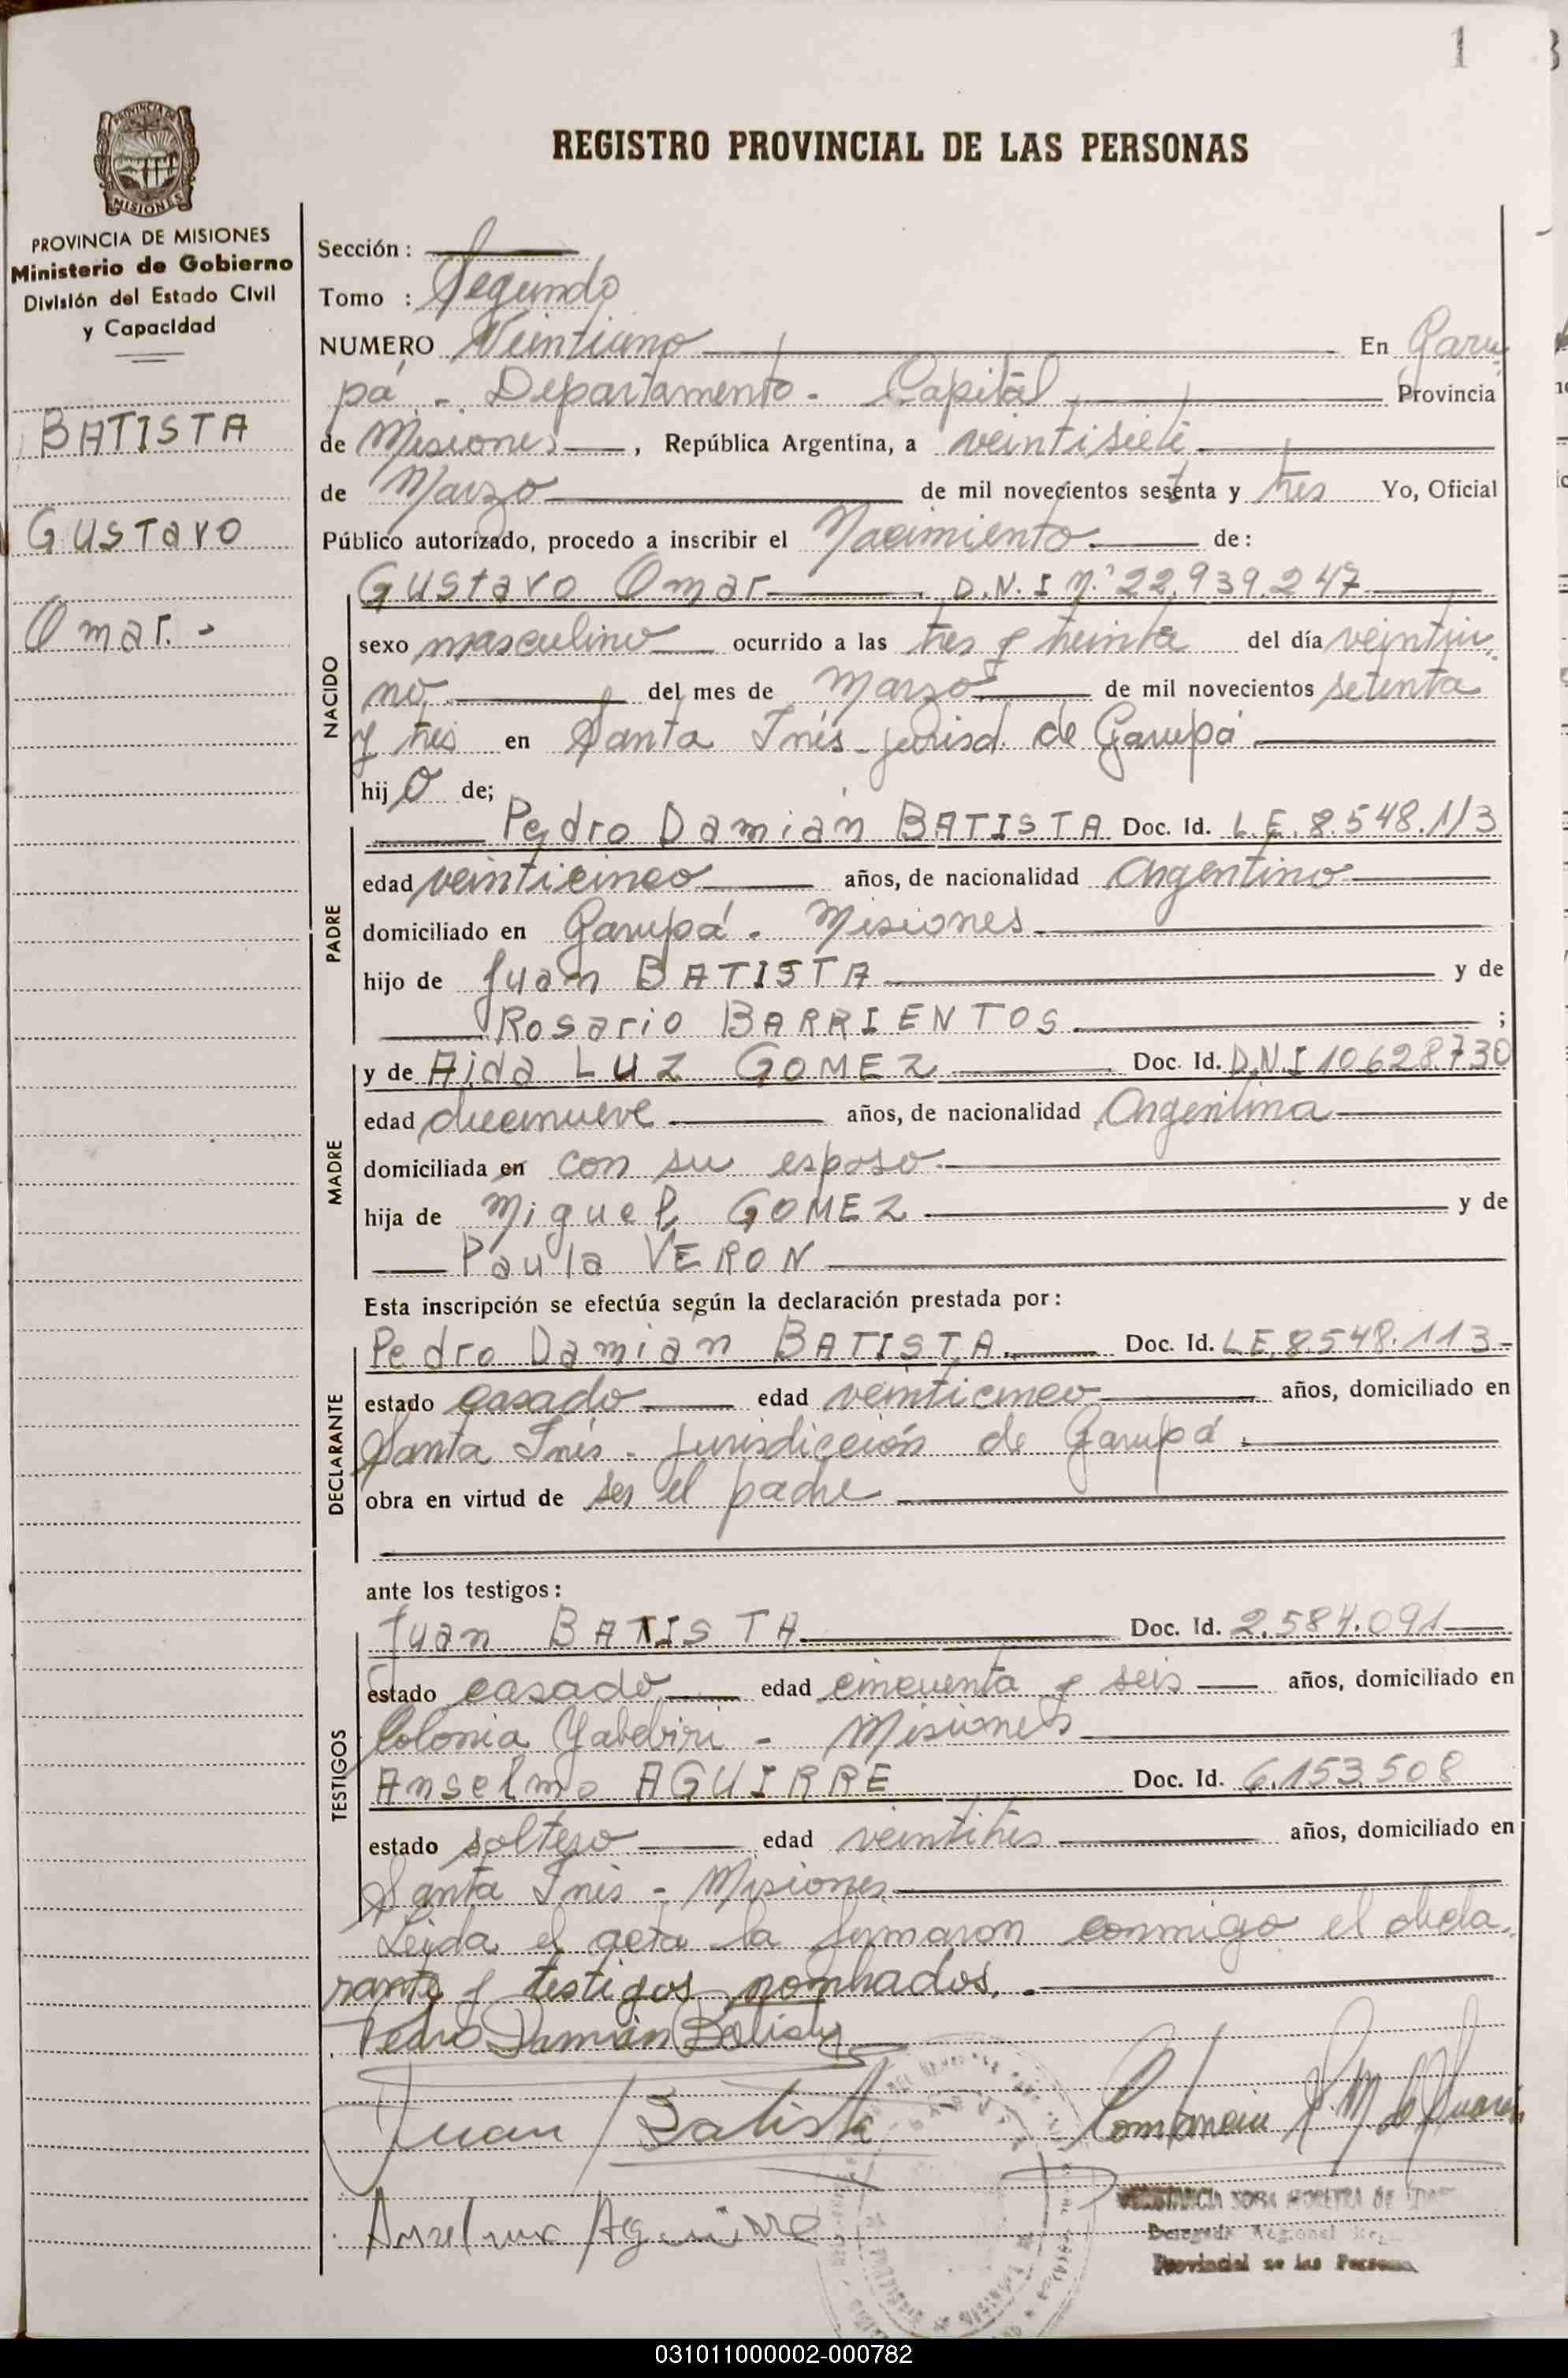 1
REGISTRO PROVINCIAL DE LAS PERSONAS
PROVINCIA DE
MISIONES
PROVINCIA DE MISIONES
Ministerio de Gobierno
División del Estado Civil
y Capacidad
BATISTA
Gustavo
Omar.-
Sección:
Tomo : Segundo
NUMERO Veintiuno En Garu
pá - Departamento - Capital Provincia
de Misiones, República Argentina, a veintisiete
de Marzo de mil novecientos sesenta y tres Yo, Oficial
Público autorizado, procedo a inscribir el Nacimiento de:
NACIDO
Gustavo Omar D.N.I Nº 22.939.247
sexo masculino ocurrido a las tres y treinta del día veintiu
no del mes de Marzo de mil novecientos setenta
y tres en Santa Inés - jurisd. de Garupá
hijo de;
PADRE
Pedro Damián BATISTA Doc. Id. L.E. 8.548.113
edad veinticinco años, de nacionalidad Argentino
domiciliado en Garupá - Misiones
hijo de Juan BATISTA y de
Rosario BARRIENTOS ;
MADRE
y de Aida LUZ GOMEZ Doc. Id. D.N.I 10.628.730
edad diecinueve años, de nacionalidad Argentina
domiciliada en con su esposo
hija de Miguel GOMEZ y de
Paula VERON
Esta inscripción se efectúa según la declaración prestada por:
DECLARANTE
Pedro Damian BATISTA Doc. Id. L.E. 8.548.113-
estado casado edad veinticinco años, domiciliado en
Santa Inés - jurisdicción de Garupá
obra en virtud de ser el padre
ante los testigos:
TESTIGOS
Juan BATISTA Doc. Id. 2.584.091
estado casado edad cincuenta y seis años, domiciliado en
Colonia Yabebiri - Misiones
Anselmo AGUIRRE Doc. Id. 6.153.508
estado soltero edad veintitres años, domiciliado en
Santa Inés - Misiones
Leída el acta la firmaron conmigo el decla
rante y testigos nombrados.
Pedro Damián Batista
Juan Batista
Anselmo Aguirre
Provincial de las Personas
031011000002-000782